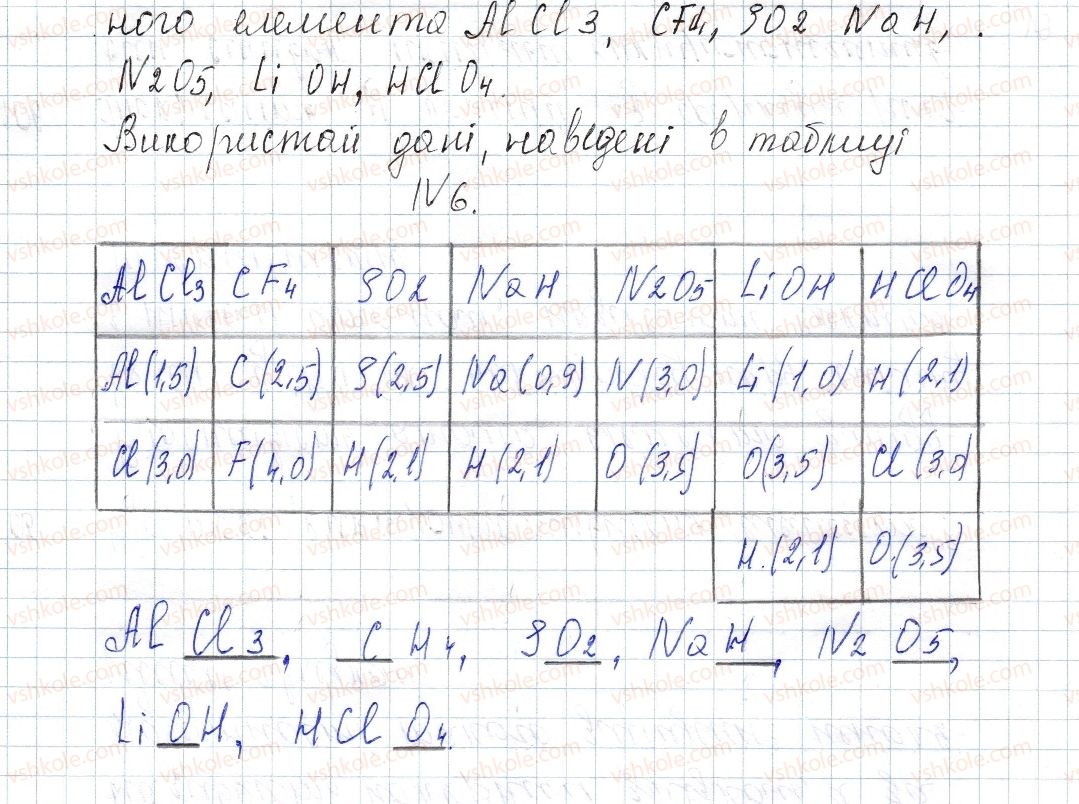 ного елемента AlCl3, CF4, SO2 NaH,
N2O5, LiOH, HClO4.
Використай дані, наведені в таблиці
№6.
AlCl3 CF4 SO2 NaH N2O5 LiOH HClO4
Al(1,5) C(2,5) S(2,5) Na(0,9) N(3,0) Li(1,0) H(2,1)
Cl(3,0) F(4,0) H(2,1) H(2,1) O(3,5) O(3,5) Cl(3,0)
H.(2,1) O.(3,5)
AlCl3, CH4, SO2, NaH, N2O5,
LiOH, HClO4.